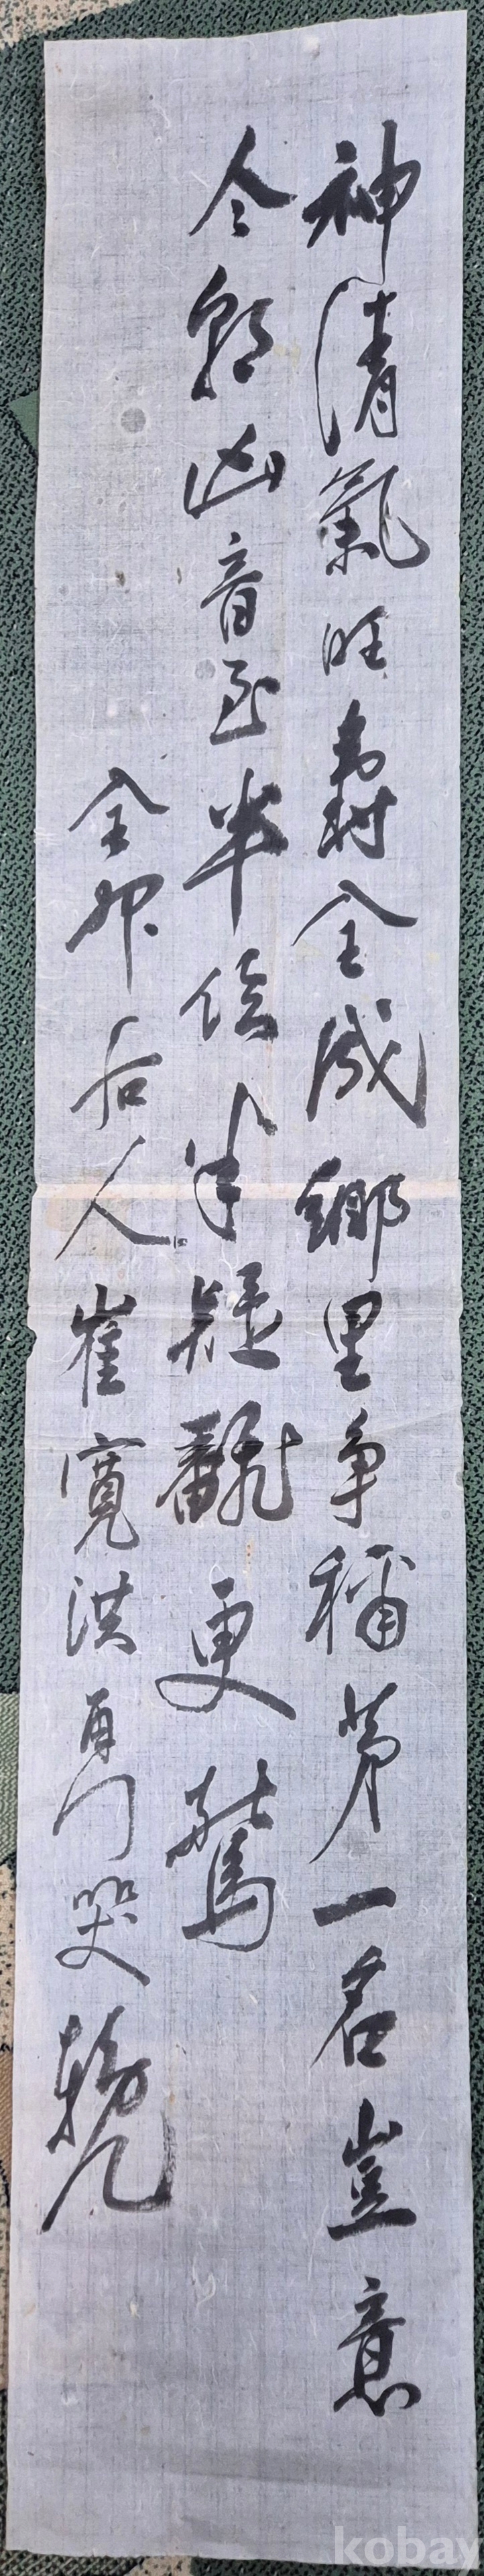 神清氣旺壽全成鄕里爭稱第一名豈意
今朝凶音至半信半疑飜更驚
全州后人崔寬洪再門哭輓
kobay